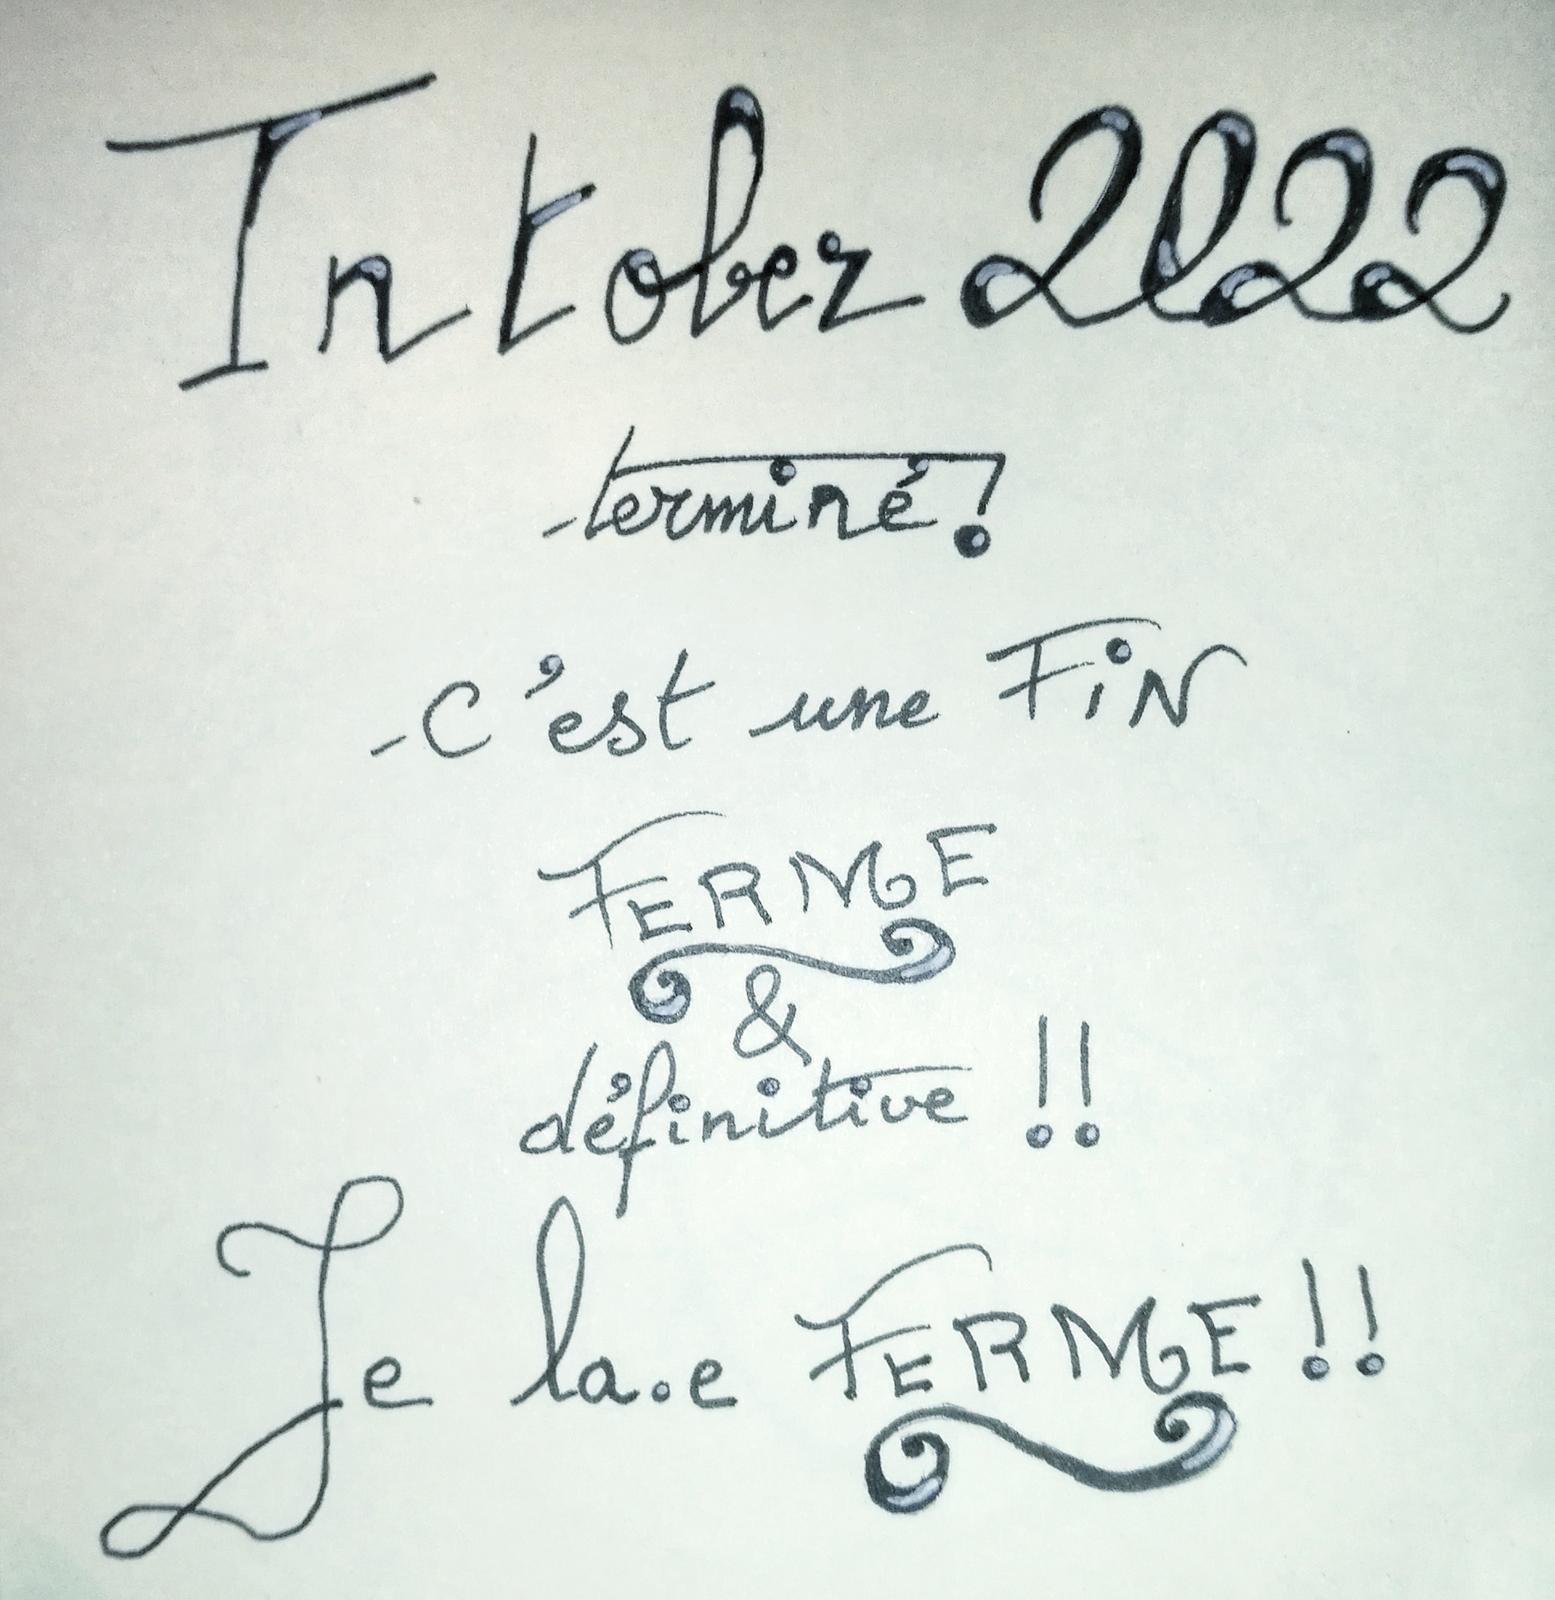 Inktober 2022
terminé!
- C'est une FiN
FERME
&
définitive !!
Je la.e FERME !!